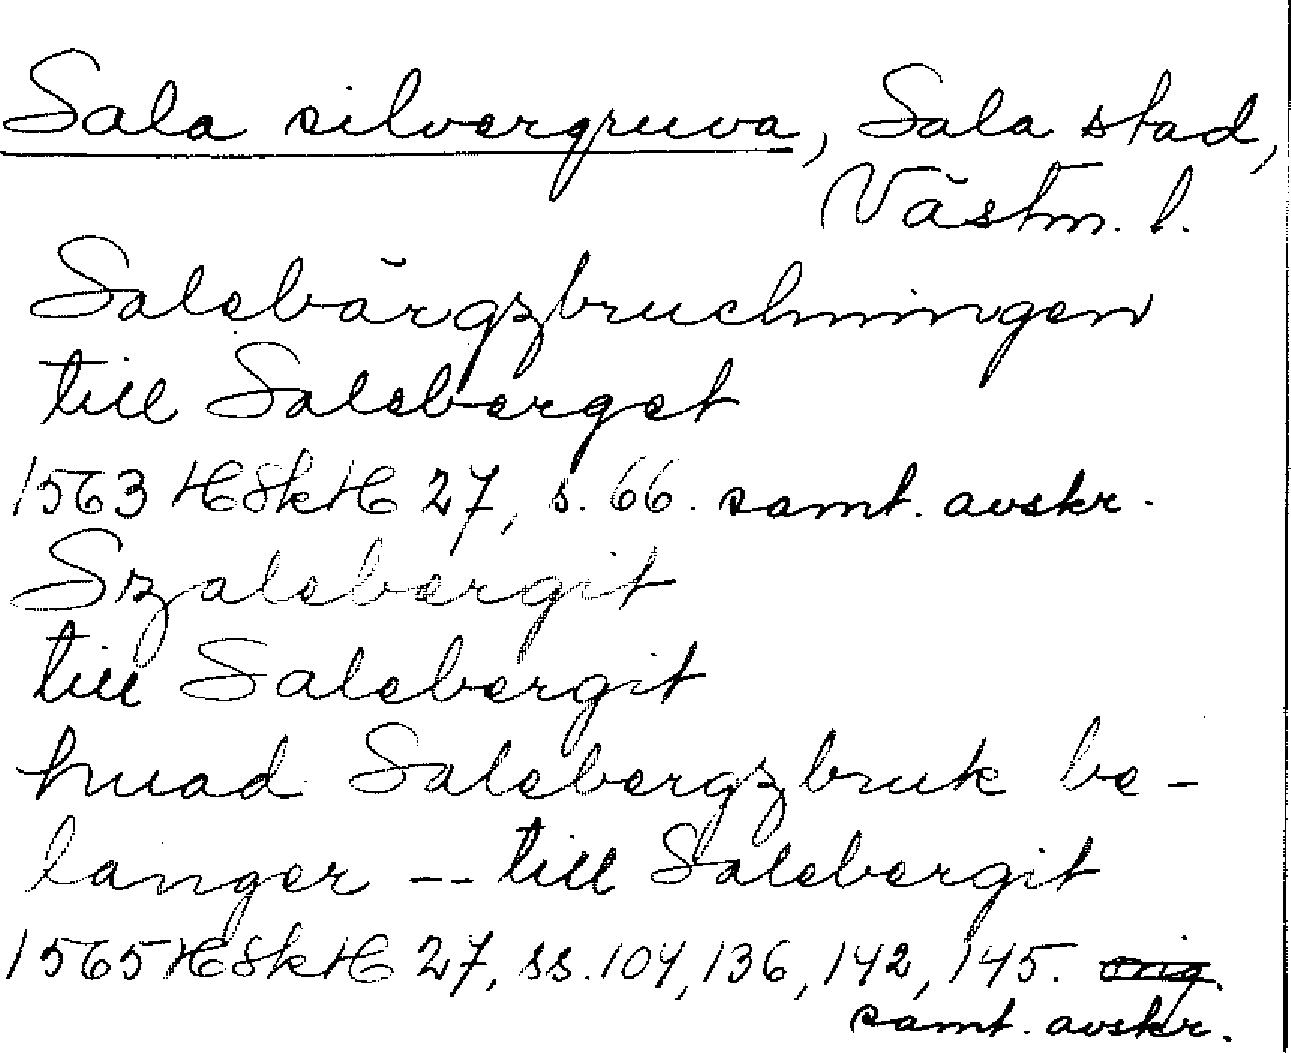 Sala silvergruva, Sala stad,
Västm. l.
Salebärgzbruchningen
till Saleberget
1563 HSkH 27, s. 66. samt. avskr.
Szalebergit
till Salebergit
huad Salebergzbruk be-
langer -- till Salebergit
1565 HSkH 27, ss. 104, 136, 142, 145. orig.
samt. avskr.